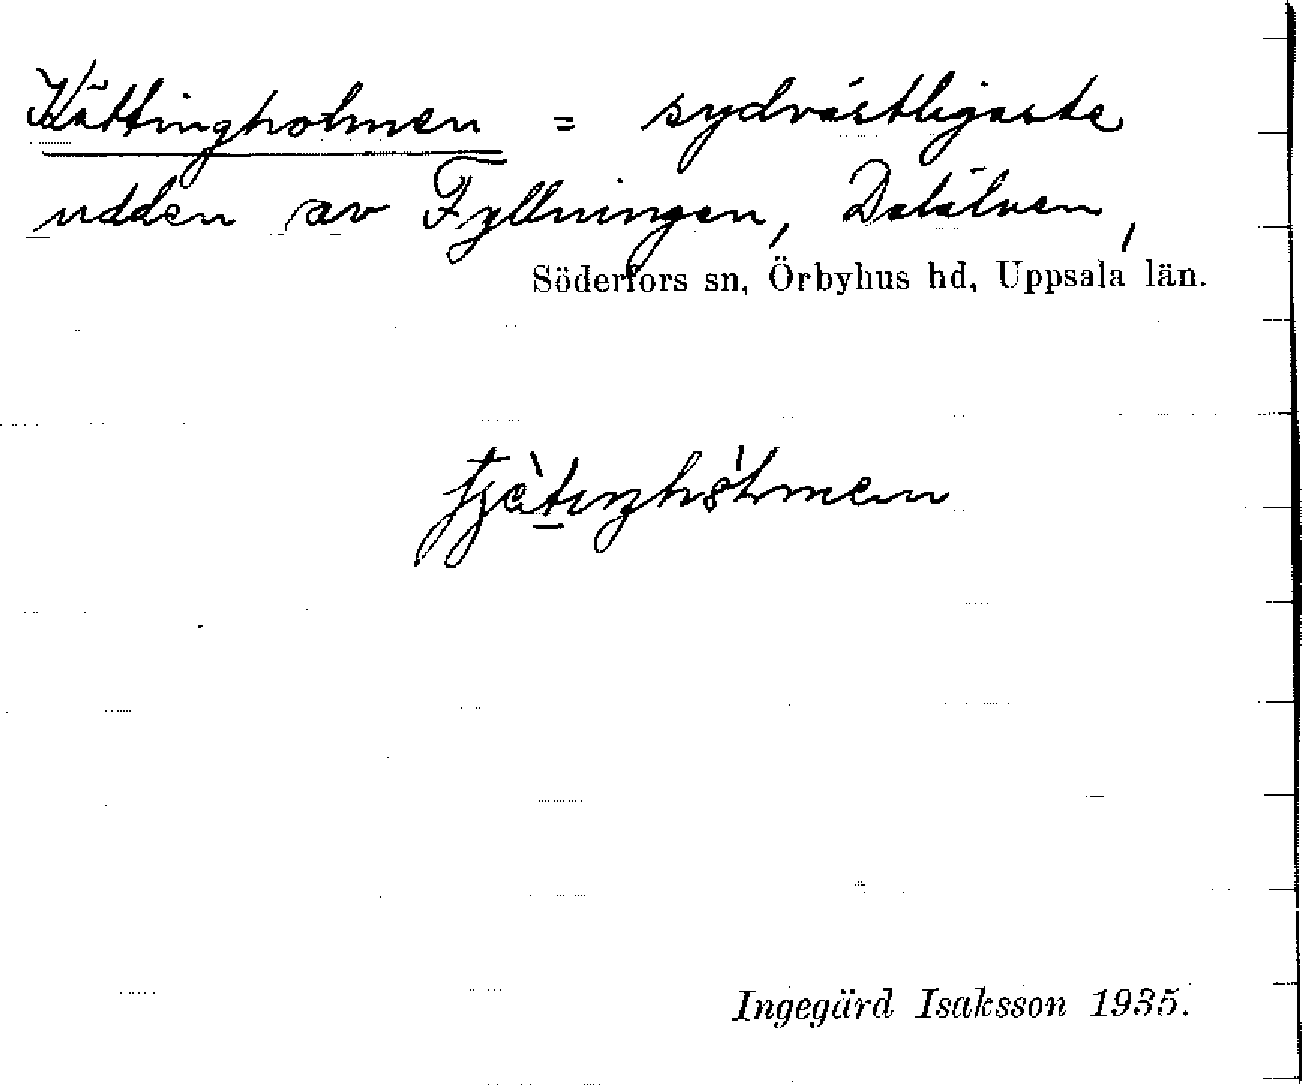 Kättingholmen = sydvästligaste
udden av Fyllningen, Dalälven,
Söderfors sn, Örbyhus hd, Uppsala län.
Ingegärd Isaksson 1935.